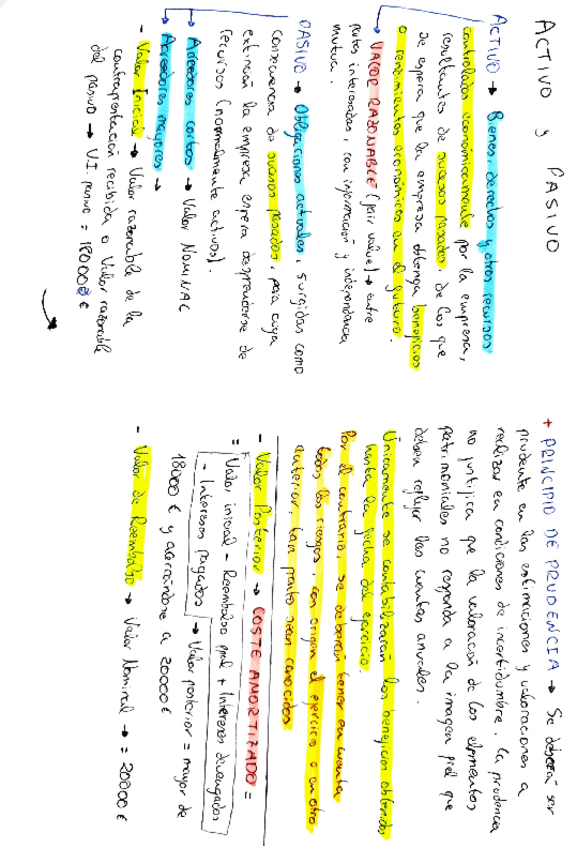 ACTIVO y PASIVO
ACTIVO → Bienes, derechos y otros recursos
controlados económicamente por la empresa,
resultantes de sucesos pasados, de los que
se espera que la empresa obtenga beneficios
o rendimientos económicos en el futuro.
→ VALOR RAZONABLE (fair value) → entre
partes interesadas, con información y independencia
mutua.
PASIVO → Obligaciones actuales, surgidas como
consecuencia de sucesos pasados, para cuya
extinción la empresa espera desprenderse de
recursos (normalmente activos).
→ Acreedores cortos → Valor NOMINAL
→ Acreedores mayores →
- Valor Inicial → Valor razonable de la
contraprestación recibida o Valor razonable
del pasivo → V.I. pasivo = 18000 €
+ PRINCIPIO DE PRUDENCIA → Se deberá ser
prudente en las estimaciones y valoraciones a
realizar en condiciones de incertidumbre. La prudencia
no justifica que la valoración de los elementos
patrimoniales no responda a la imagen fiel que
deben reflejar las cuentas anuales.
Únicamente se contabilizarán los beneficios obtenidos
hasta la fecha del ejercicio.
Por el contrario, se deberán tener en cuenta
todos los riesgos, con origen el ejercicio o en otro
anterior, tan pronto sean conocidos
- Valor Posterior → COSTE AMORTIZADO =
= Valor inicial - Reembolso ppal + Intereses devengados
- Intereses pagados → Valor posterior = mayor de
18000 € y acercándose a 20000 €
- Valor de Reembolso → Valor Nominal → = 20000 €